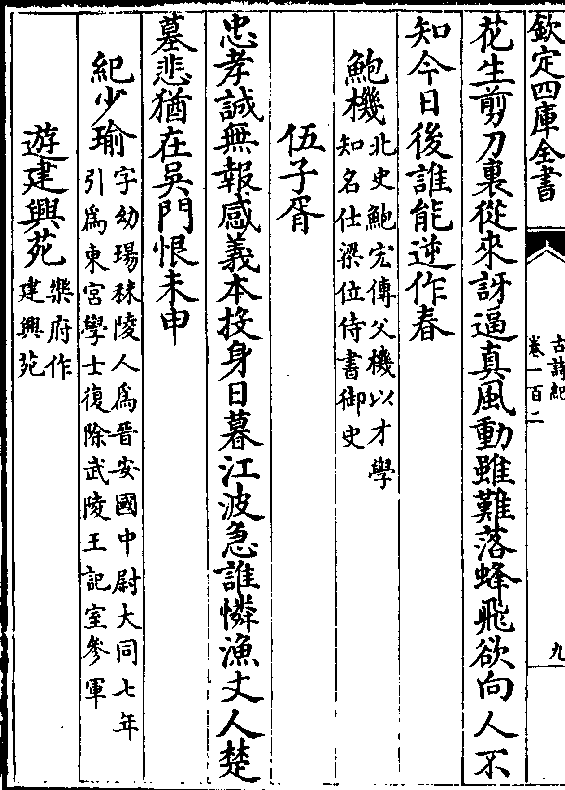 欽定四庫全書
古詩紀
卷一百二
九
花生剪刀裏從來訝逼真風動雖難落蜂飛欲向人不
知今日後誰能逆作春
鮑機北史鮑宏傳父機以才學
知名仕梁位侍書御史
伍子胥
忠孝誠無報感義本投身日暮江波急誰憐漁丈人楚
墓悲猶在吳門恨未申
紀少瑜字幼瑒秣陵人為晉安國中尉大同七年
引為東宮學士復除武陵王記室參軍
遊建興苑樂府作
建興苑